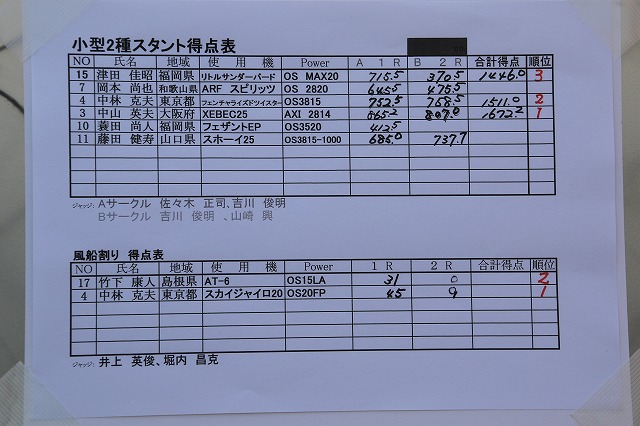 小型2種スタント得点表
NO 氏名 地域 使用機 Power A 1R B 2R 合計得点 順位
15 津田 佳昭 福岡県 リトルサンダーバード OS MAX20 715.5 370.5 1446.0 3
7 岡本 尚也 和歌山県 ARF スピリッツ OS 2820 645.5 475.5
4 中林 克夫 東京都 フェンチャライズドツイスター OS3815 752.5 758.5 1511.0 2
3 中山 英夫 大阪府 XEBEC25 AXI 2814 865.2 807.0 1672.2 1
10 蓑田 尚人 福岡県 フェザントEP OS3520 412.5
11 藤田 健寿 山口県 スホーイ25 OS3815-1000 685.0 737.7
ジャッジ: Aサークル 佐々木 正司、吉川 俊明
Bサークル 吉川 俊明 、山崎 興
風船割り 得点表
NO 氏名 地域 使用機 Power 1R 2R 合計得点 順位
17 竹下 康人 島根県 AT-6 OS15LA 31 0 2
4 中林 克夫 東京都 スカイジャイロ20 OS20FP 45 9 1
ジャッジ: 井上 英俊、堀内 昌克